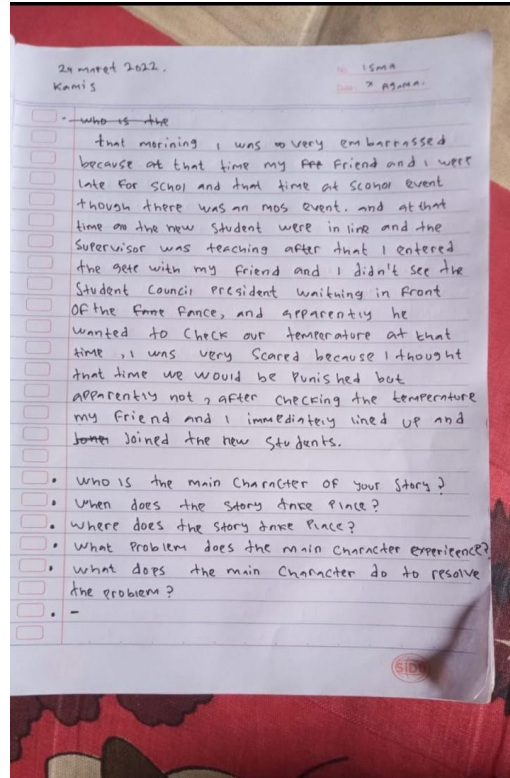 24 maret 2022.
Kamis
No: ISMA
Date: X Agama.
- who is the
that morining I was so very embarrassed
because at that time my Friend and I were
late For schol and that time at scohol event
though there was an mos event. and at that
time on the new Student were in line and the
Supervisor was teaching after that I entered
the gete with my friend and I didn't see the
Student Council President waitning in Front
OF the Fame Fance, and apparently he
wanted to Check our temperature at that
time , I was very Scared because I thought
that time we would be Punished but
apparently not , after checking the temperature
my Friend and I immediately lined up and
Joined the new Students.
• Who is the main Character of your Story?
• When does the Story take Place?
• Where does the Story take Place?
• What Problem does the main Character experieence?
• What does the main Character do to resolve
the problem?
• -
SIDU